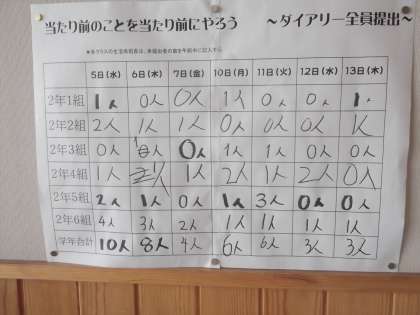 当たり前のことを当たり前にやろう ～ダイアリー全員提出～
5日(水) 6日(木) 7日(金) 10日(月) 11日(火) 12日(水) 13日(木)
2年1組 1人 0人 0人 1人 0人 0人 1人
2年2組 2人 1人 1人 0人 0人 0人 1人
2年3組 0人 0人 1人 1人 0人 0人
2年4組 1人 1人 2人 1人 2人 0人
2年5組 2人 1人 0人 1人 3人 0人 0人
2年6組 4人 3人 2人 1人 1人 1人 1人
学年合計 10人 8人 4人 6人 6人 3人 3人